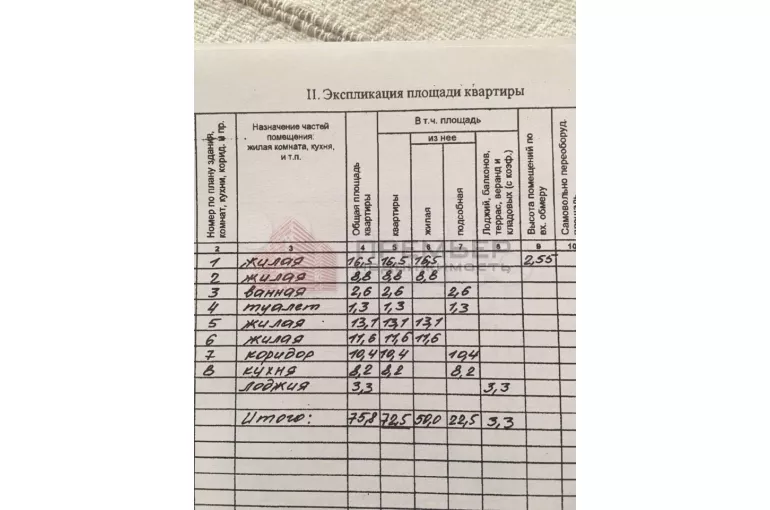 II. Экспликация площади квартиры
Номер по плану здания, комнат, кухни, корид. и пр.
Назначение частей помещения: жилая комната, кухня, и т.п.
Общая площадь квартиры
В т.ч. площадь
квартиры
из нее
жилая
подсобная
Лоджий, балконов, террас, веранд и кладовых (с коэф.)
Высота помещений по вх. обмеру
Самовольно переоборуд.
2 3 4 5 6 7 8 9 10
ПРЕМЬЕР
НЕДВИЖИМОСТЬ
1 жилая 16,5 16,5 16,5 2,55
2 жилая 8,8 8,8 8,8
3 ванная 2,6 2,6 2,6
4 туалет 1,3 1,3 1,3
5 жилая 13,1 13,1 13,1
6 жилая 11,6 11,6 11,6
7 коридор 10,4 10,4 10,4
8 кухня 8,2 8,2 8,2
лоджия 3,3 3,3
Итого: 75,8 72,5 50,0 22,5 3,3